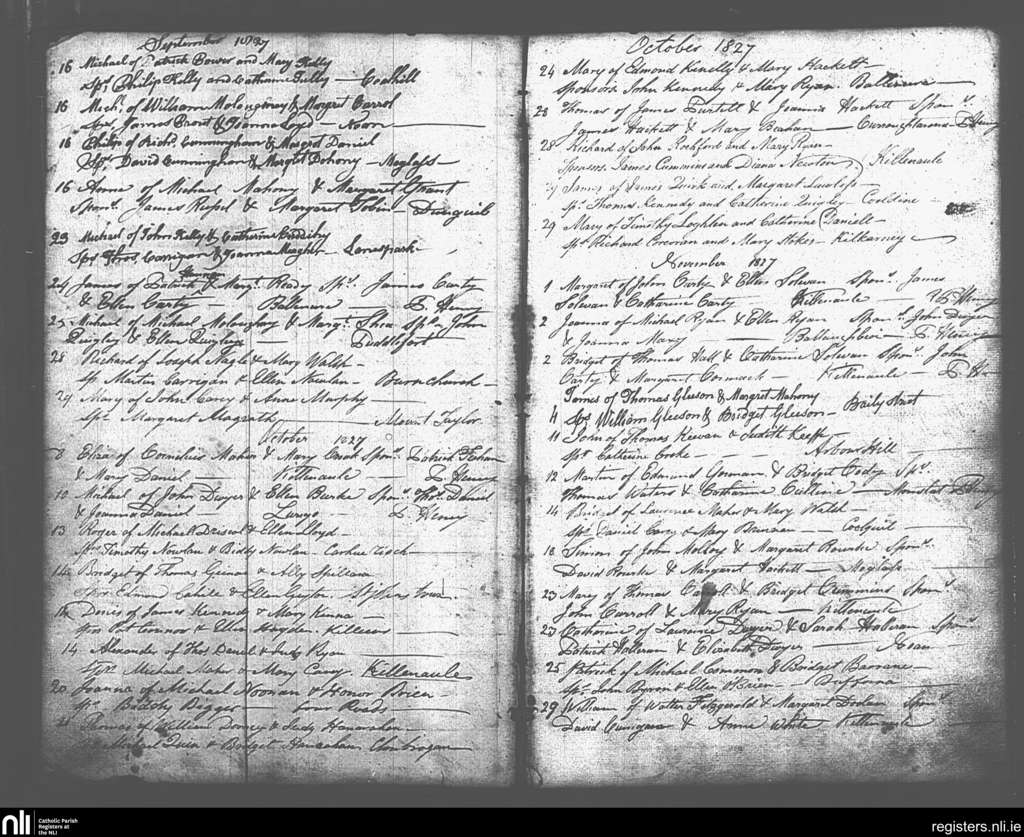 September 1827
16 Michael of Patrick Bower and Mary Kelly
Sps Philip Kelly and Catharine Kelly — Coalhill
16 Michl of William Molougney & Margret Carrol
Sps James Brout & Joanna Loyd — Noan —
16 Philip of Richd Cunningham & Margret Daniel
Sps David Cunningham & Margt Dohony — Moglass —
16 Anne of Michael Mahony & Margaret Grant
Sponr James & Margaret Tobin — Dunguib
23 Michael of John Kelly & Catharine
Sps Thos Corrigan & Joanna Meagher — Lanespark
24 James of Patrick & Margt Ready Sps James Carty
& Ellen Carty — P. Heney
25 Michael of Michael Moloughny & Margt Shea Sps John
Quigley & Ellen Quigley —
28 Richard of Joseph Nagle & Mary Walsh —
Sp Martin Corrigan & Ellen Nowlan — Buranchurch —
29 Mary of John Carey & Anne Murphy —
Sps Margaret Magrath — Mount Taylor
October 1827
8 Eliza of Cornelius Maher & Mary Sponr Patrick
& Mary Daniel — Killenaule — P. Heney
10 Michael of John Dwyer & Ellen Burke Sponr Thos Daniel
& Joanna Daniel — P. Heney
13 Roger of Michael Driscol & Ellen Lloyd —
Sps Timothy Nowlan & Biddy Nowlan —
14 Bridget of Thomas & Ally Spillane
Sps Edmond Cahill & Ellen
14 Denis of James Kennedy & Mary Kenna —
Pat Connor & Ellen Hayden. Killeens —
14 Alexander of Thos Daniel & Judy Ryan
Sps Michael Maher & Mary Carey Killenaule
20 Joanna of Michael Noonan & Honor Brien —
Sps Biddy Bigger — Four Roads —
Thomas of William & Judy Hanrahan —
Michael Quin & Bridget Hanrahan
October 1827
24 Mary of Edmond Kinelly & Mary Hackett —
Sponsors John Kennedy & Mary Ryan.
28 Thomas of James Purtill & Joannia Hackett Sponrs
James Hackett & Mary — P. Heney
28 Richard of John Rochford and Mary Ryan —
Sponsors James Cummins and Diana Newton Killenaule
James of James Quirk and Margaret Lawless —
Sps Thomas Kennedy and Catherine Quigley — Cooldine
29 Mary of Timothy Loghlen and Catherine Daniell —
Sps Richard Corcoran and Mary Stokes — Kilkarney
November 1827
1 Margaret of John Carty & Ellen Solevan Sponr James
Solevan & Catharine Carty Killenaule — P. Heney
2 Joanna of Michael Ryan & Ellen Ryan Sponr John Dwyer
& Joanna Mary — P. Heney
2 Bridget of Thomas Hall & Catharine Solevan Sponr John
Carty & Margaret Cormack — Killenaule — P. He
James of Thomas Gleeson & Margret Mahony
4 Sps William Gleeson & Bridget Gleeson — Baily Street
11 John of Thomas Keevan & Judith Keeffe —
Sps Catherine Cooke — Arbour Hill
12 Martin of Edmund Gorman & Bridget Cody Sps
Thomas Waters & Catharine —
14 Bridget of Laurence Maher & Mary Walsh —
Sps Daniel Carey & Mary Brennan — Coolquil —
18 of John Mollony & Margaret Rourke Sponr
David Rourke & Margaret Hackett — Moglass
23 Mary of Thomas Carroll & Bridget Crimmins Sponr
John Carroll & Mary Ryan — Killenaule —
23 Catharine of Laurence Dwyer & Sarah Haleran Sponr
Patrick Haleran & Elizabeth Dwyer — Noan —
25 Patrick of Michael Commons & Bridget —
Sps John Byron & Ellen O'Brien —
29 William of Walter Fitzgerald & Margaret Dolan Sponr
David & Anne White Killenaule
nli
Catholic Parish
Registers at
the NLI
registers.nli.ie